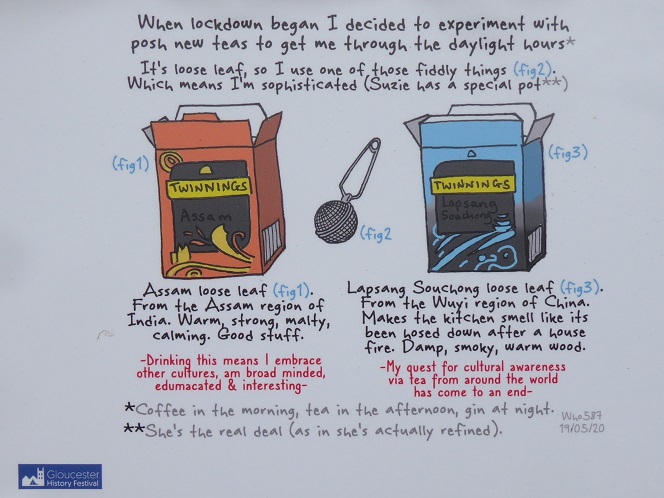 When lockdown began I decided to experiment with
posh new teas to get me through the daylight hours*
It's loose leaf, so I use one of those fiddly things (fig2).
Which means I'm sophisticated (Suzie has a special pot**)
(fig1)
TWINNINGS
Assam
(fig2
TWINNINGS
Lapsang
Souchong
(fig3)
Assam loose leaf (fig1).
From the Assam region of
India. Warm, strong, malty,
calming. Good stuff.
-Drinking this means I embrace
other cultures, am broad minded,
edumacated & interesting-
Lapsang Souchong loose leaf (fig3).
From the Wuyi region of China.
Makes the kitchen smell like its
been hosed down after a house
fire. Damp, smoky, warm wood.
-My quest for cultural awareness
via tea from around the world
has come to an end-
*Coffee in the morning, tea in the afternoon, gin at night.
**She's the real deal (as in she's actually refined).
Who587
19/05/20
Gloucester
History Festival